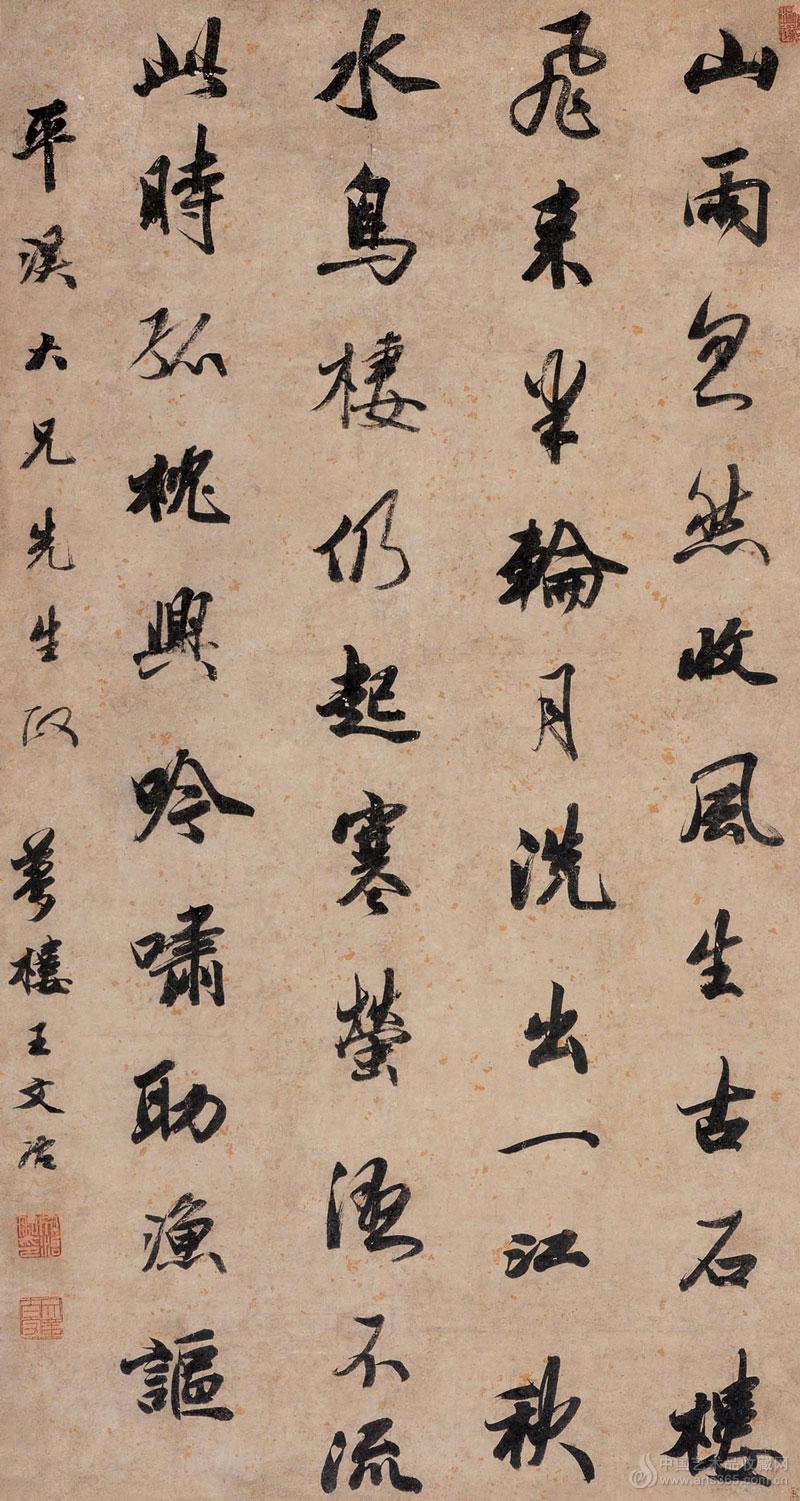 山雨忽然收風生古石樓
飛來半輪月洗出一江秋
水鳥棲仍起寒螢濕不流
此時孤枕興吟嘯助漁謳
平溪大兄先生政 夢樓王文治
中国艺术品收藏网
www.arts365.com